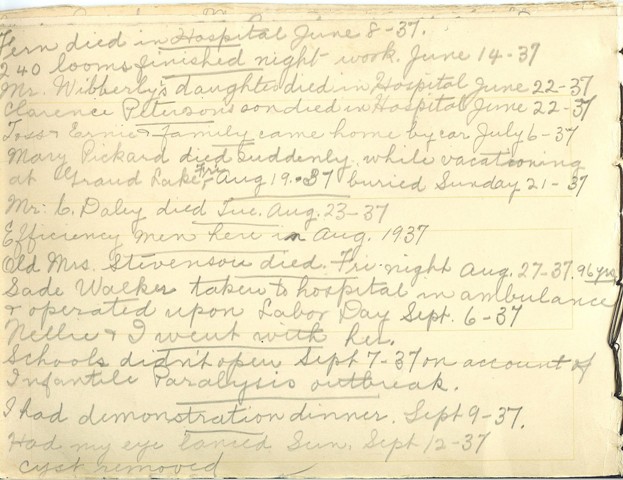 Fern died in Hospital June 8-37.
240 looms finished night work. June 14-37
Mr. Wibberly's daughter died in Hospital June 22-37
Clarence Peterson's son died in Hospital June 22-37
Toss & Ernie & family came home by car July 6-37
Mary Pickard died suddenly while vacationing
at Grand Lake Fri Aug 19.-37 buried Sunday 21-37
Mr. C. Daley died Tue. Aug. 23-37
Efficiency men here in Aug. 1937
Old Mrs. Stevenson died. Fri. night Aug. 27-37. 96 yrs
Sade Walker taken to hospital in ambulance
& operated upon Labor Day Sept. 6-37
Nellie & I went with her.
Schools didn't open Sept 7-37 on account of
Infantile Paralysis outbreak.
I had demonstration dinner. Sept 9-37.
Had my eye lanced Sun. Sept 12-37
cyst removed